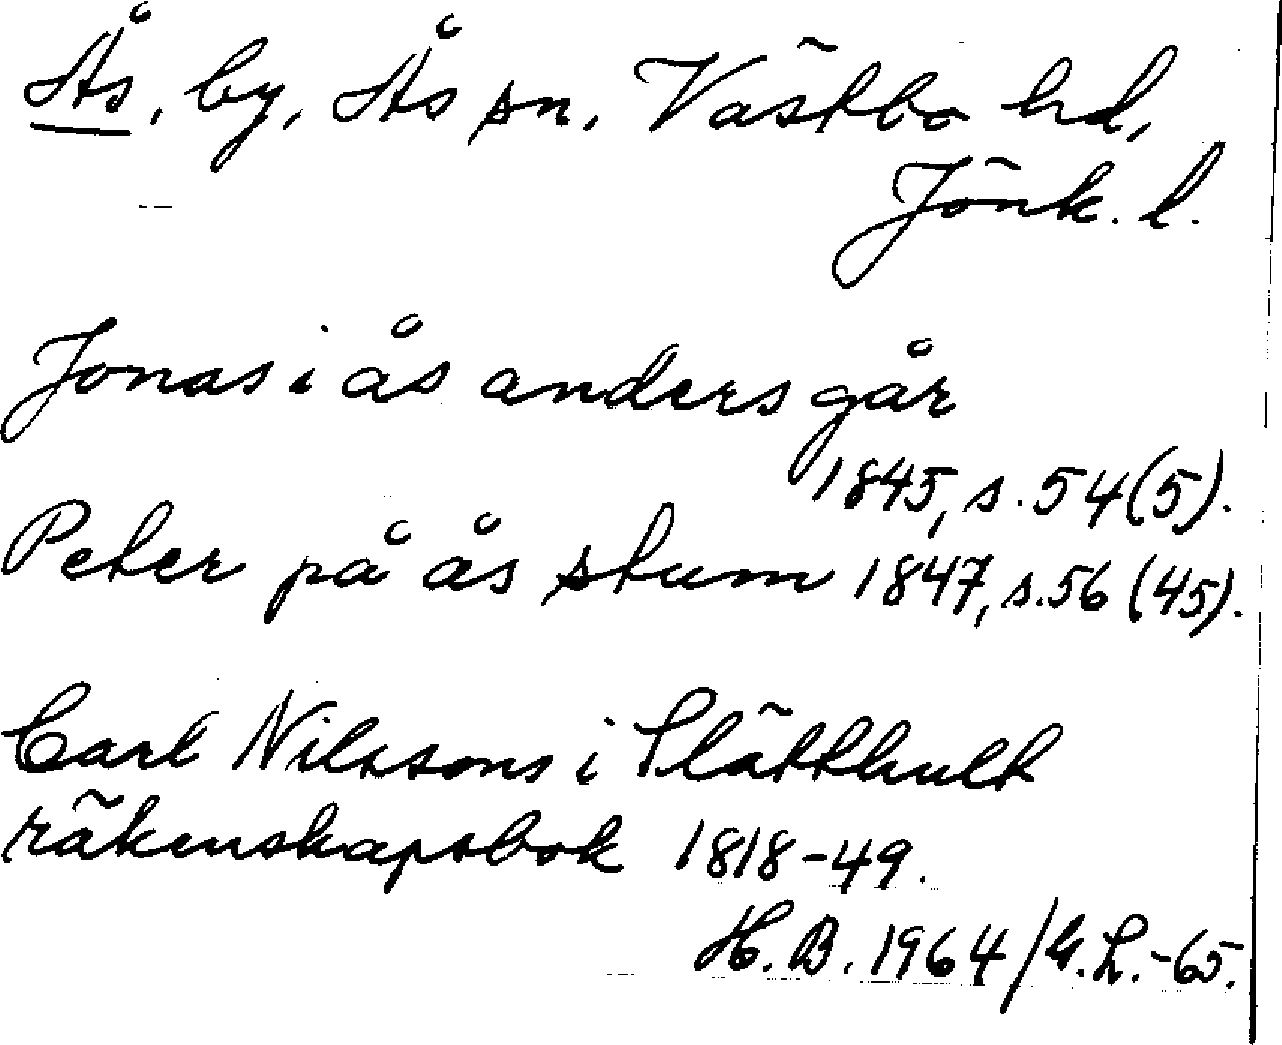 Ås, by, Ås sn, Västbo hd,
Jönk. l.
Jonas i ås anders går
1845, s. 54 (5).
Peter på ås stum 1847, s. 56 (45).
Carl Nilssons i Slätthult
räkenskapsbok 1818-49.
H. B. 1964/G. L. -65.